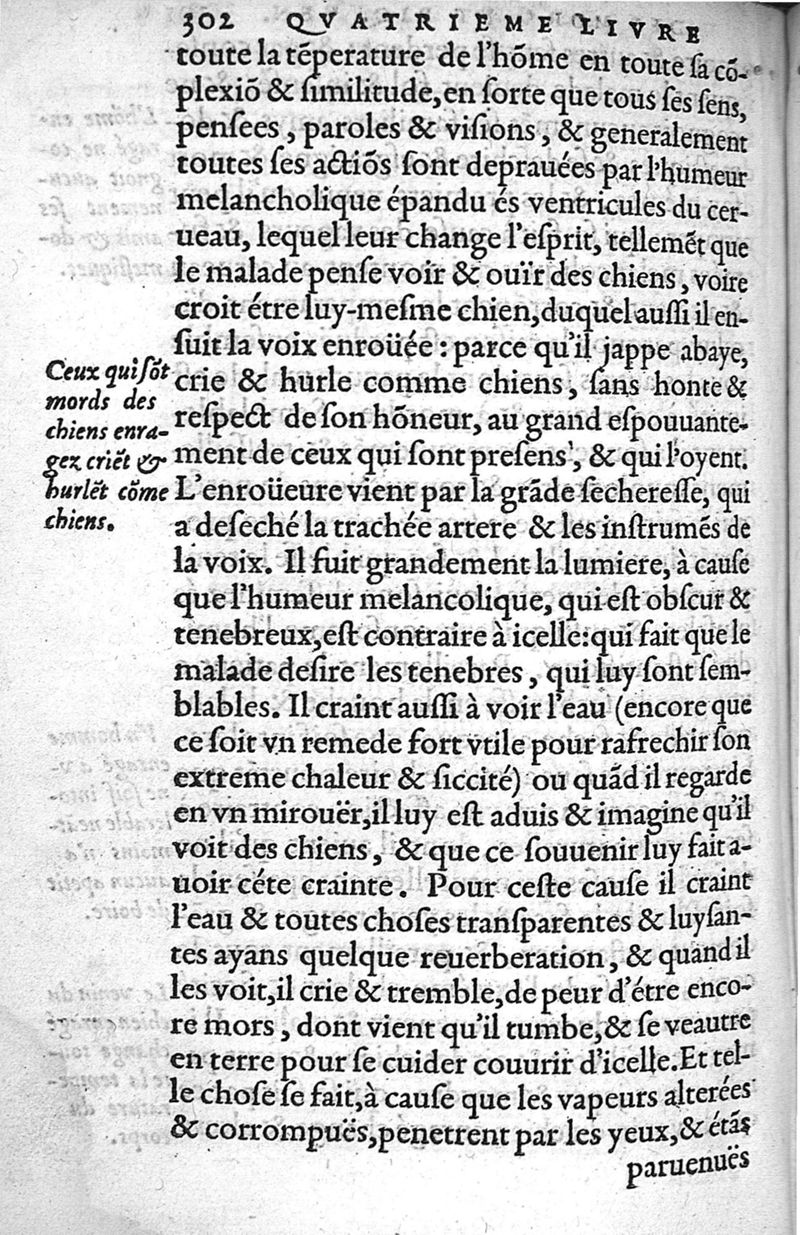 302 QVATRIEME LIVRE
toute la tẽperature de l'hõme en toute ſa cõ-
plexiõ & ſimilitude, en ſorte que tous ſes ſens,
penſees, paroles & viſions, & generalement
toutes ſes actiõs ſont deprauées par l'humeur
melancholique épandu és ventricules du cer-
ueau, lequel leur change l'eſprit, tellemẽt que
le malade penſe voir & ouïr des chiens, voire
croit étre luy-meſme chien, duquel auſſi il en-
ſuit la voix enroüée : parce qu'il jappe abaye,
crie & hurle comme chiens, ſans honte &
reſpect de ſon hõneur, au grand eſpouuante-
ment de ceux qui ſont preſens, & qui l'oyent.
L'enroüeure vient par la grãde ſechereſſe, qui
a deſeché la trachée artere & les inſtrumẽs de
la voix. Il fuit grandement la lumiere, à cauſe
que l'humeur melancolique, qui eſt obſcur &
tenebreux, eſt contraire à icelle: qui fait que le
malade deſire les tenebres, qui luy ſont ſem-
blables. Il craint auſſi à voir l'eau (encore que
ce ſoit vn remede fort vtile pour rafrechir ſon
extreme chaleur & ſiccité) ou quãd il regarde
en vn mirouër, il luy eſt aduis & imagine qu'il
voit des chiens, & que ce ſouuenir luy fait a-
uoir céte crainte. Pour ceſte cauſe il craint
l'eau & toutes choſes tranſparentes & luyſan-
tes ayans quelque reuerberation, & quand il
les voit, il crie & tremble, de peur d'étre enco-
re mors, dont vient qu'il tumbe, & ſe veautre
en terre pour ſe cuider couurir d'icelle. Et tel-
le choſe ſe fait, à cauſe que les vapeurs alterées
& corrompuës, penetrent par les yeux, & étãs
paruenuës
Ceux qui ſõt
mords des
chiens enra-
gez criẽt &
hurlẽt cõme
chiens.